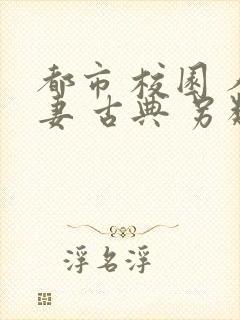 都市 校园
妻 古典 另
浮名浮